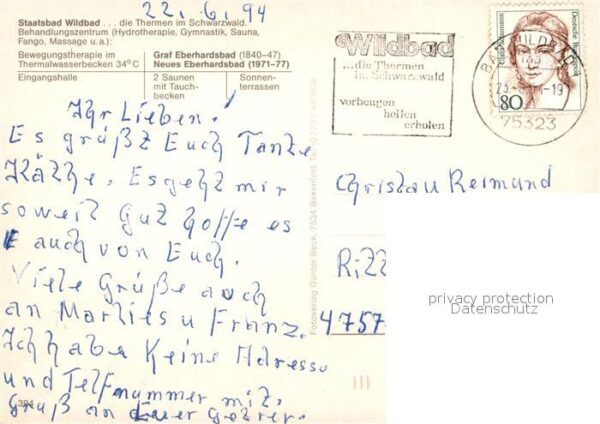 22.6.94
Staatsbad Wildbad ... die Thermen im Schwarzwald.
Behandlungszentrum (Hydrotherapie, Gymnastik, Sauna,
Fango, Massage u.a.):
Bewegungstherapie im
Thermalwasserbecken 34°C
Graf Eberhardsbad (1840-47)
Neues Eberhardsbad (1971-77)
Eingangshalle
2 Saunen
mit Tauch-
becken
Sonnen-
terrassen
Ihr Lieben!
Es grüßt Euch Tante
Käthe. Es geht mir
soweit gut hoffe es
auch von Euch.
Viele Grüße auch
an Marlies u Franz.
Ich habe Keine Adresse
und Telfnummer mit.
Gruß an Euer
394
Fotoverlag Günter Beck, 7534 Birkenfeld, Tel.
Wildbad
...die Thermen
im Schwarzwald
vorbeugen
heilen
erholen
BAD WILDBAD
-19
75323
Deutsche Bundespost
80
Christau Reimund
Rizz
4757
privacy protection
Datenschutz